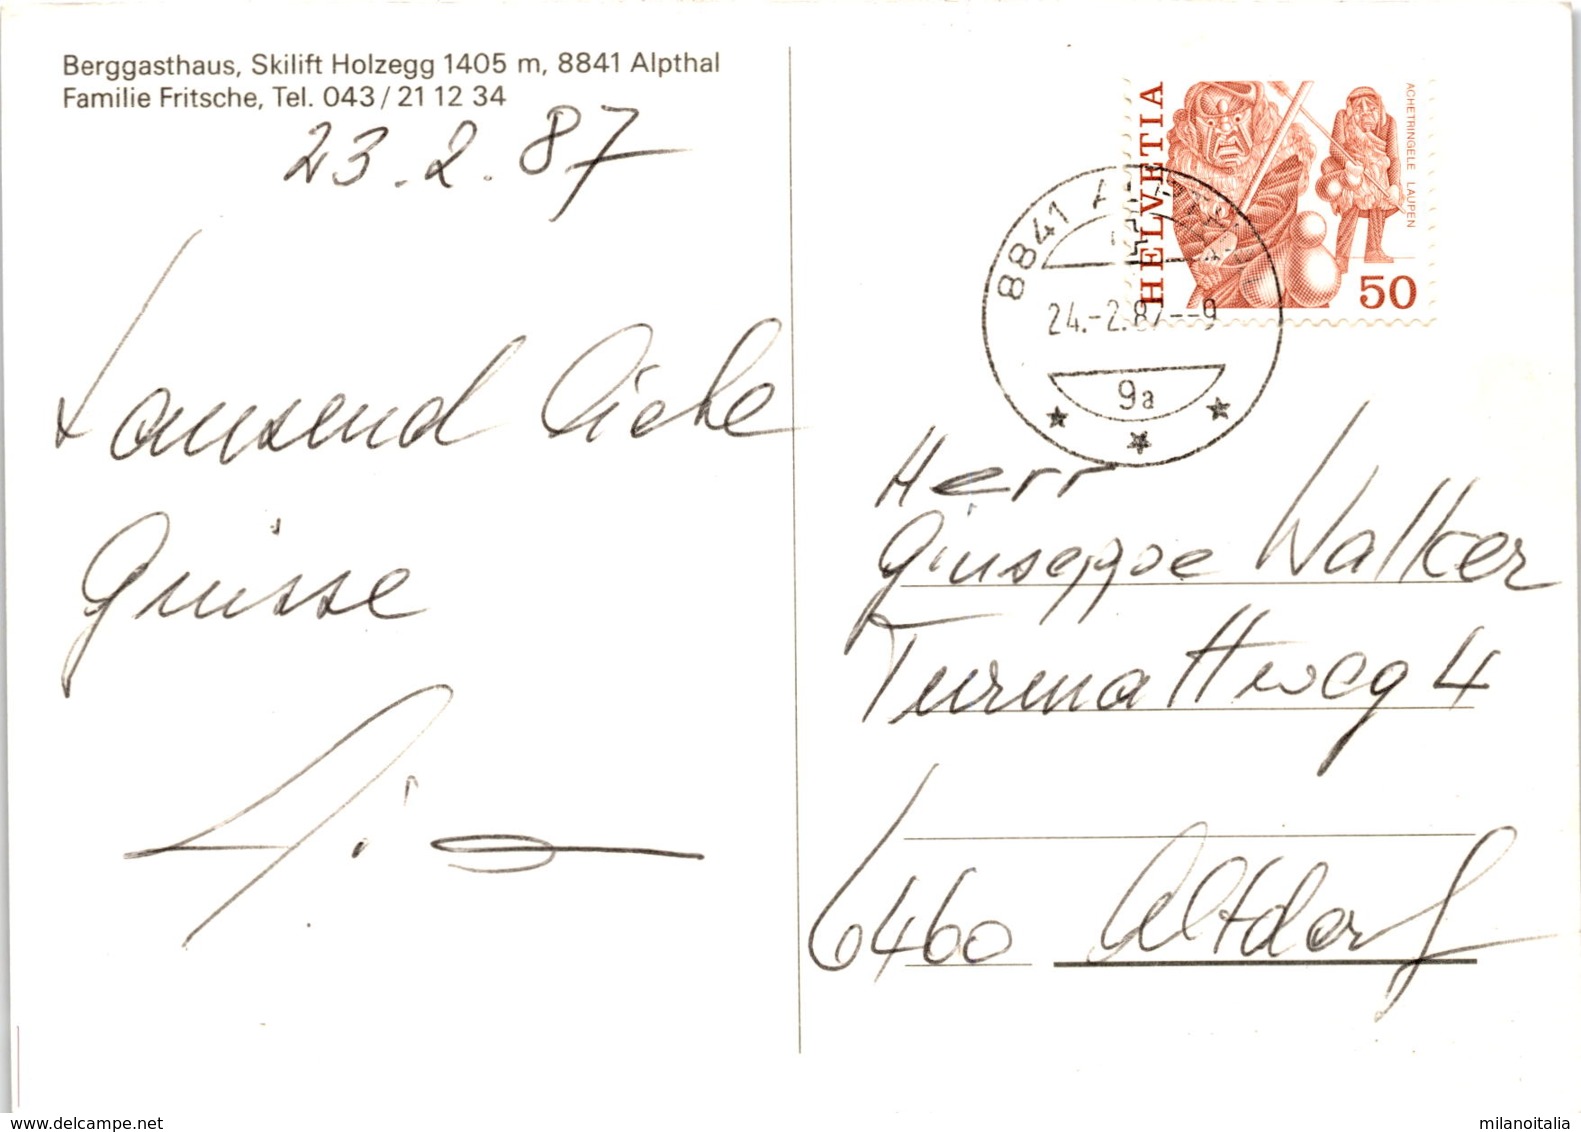 Berggasthaus, Skilift Holzegg 1405 m, 8841 Alpthal
Familie Fritsche, Tel. 043 / 21 12 34
23.2.87
Tausend liebe
Grüsse
HELVETIA
ACHETRINGELE LAUPEN
50
8841 ALPTHAL
24.-2.87--9
9a
Herr
Giuseppe Walker
Turmattweg 4
6460 Altdorf
www.delcampe.net
milanoitalia